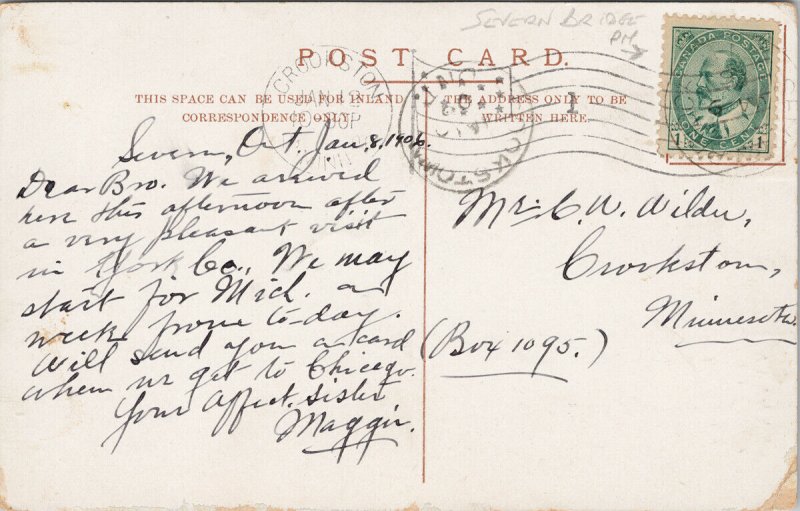 SEVERN BRIDGE
PM
POST CARD.
THIS SPACE CAN BE USED FOR INLAND
CORRESPONDENCE ONLY.
THE ADDRESS ONLY TO BE
WRITTEN HERE.
CROOKSTON
JAN 12
MINN
CANADA POSTAGE
1 ONE CENT 1
1
Severn, Ont. Jan, 8, 1906.
Dear Bro. We arrived
here this afternoon after
a very pleasant visit
in York Co., We may
start for Mich. a
week from to-day.
Will send you a card
when we get to Chicago.
Your Affect. Sister
Maggie.
Mr. C. W. Wilder,
Crookston,
Minnesota.
(Box 1095.)